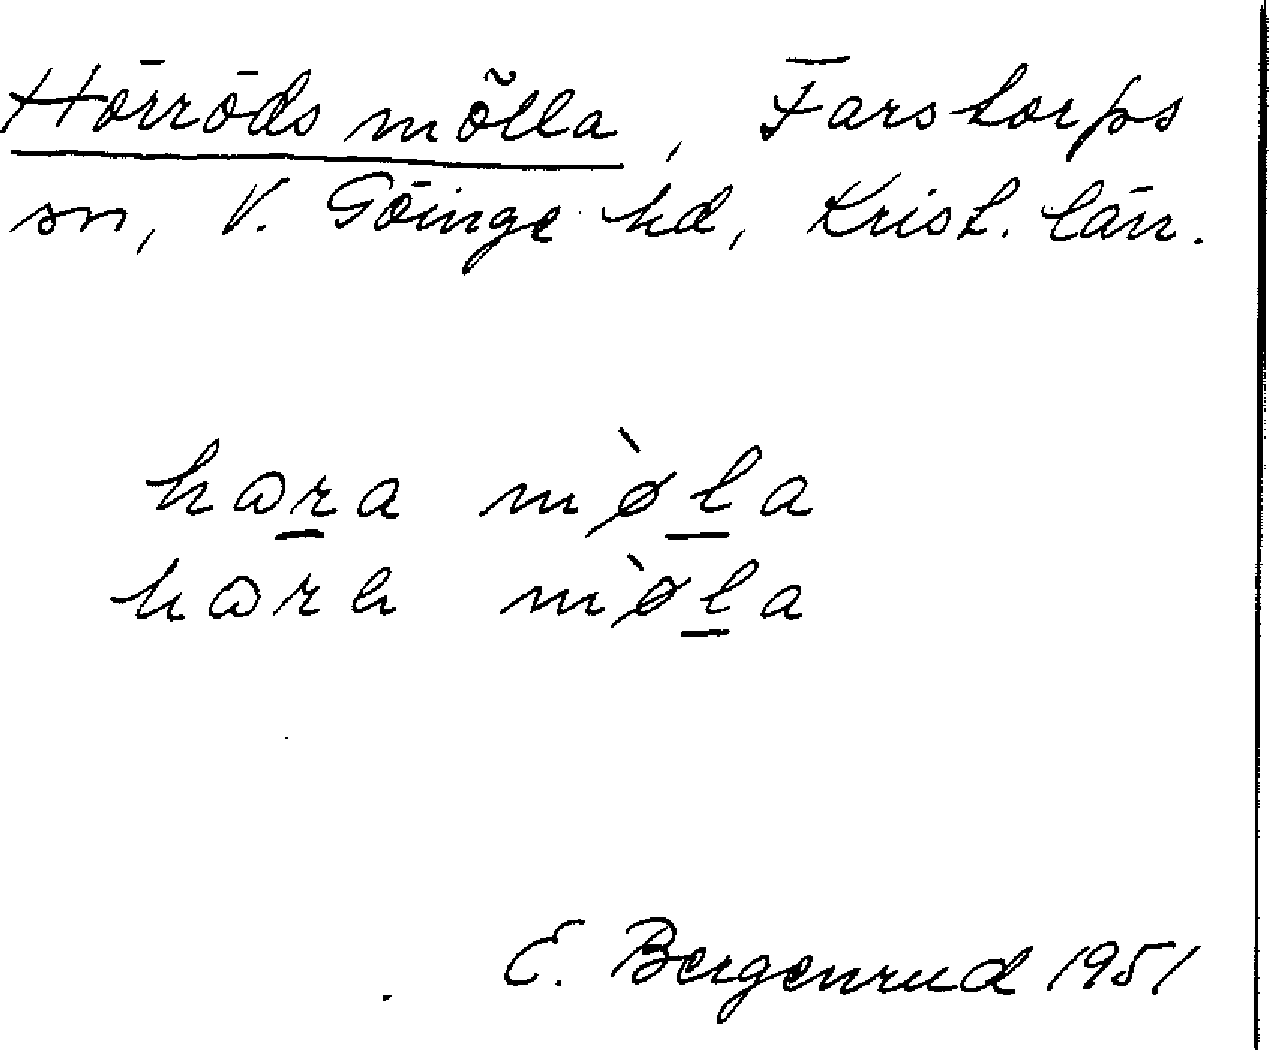 Hörröds mölla, Farstorps
sn, V. Göinge hd, Krist. län.
hɷra mø̀la
mø̀la
E. Bergenrud 1951